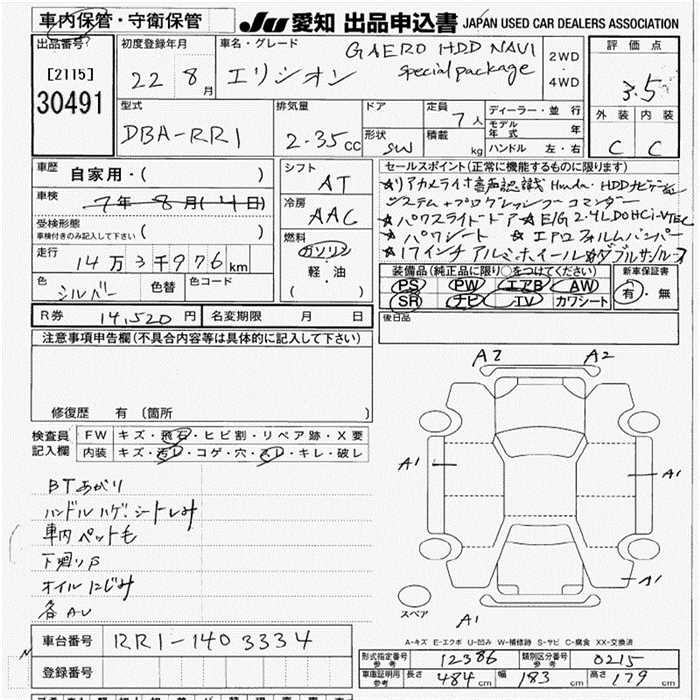 車内保管・守衛保管
JU 愛知 出品申込書 JAPAN USED CAR DEALERS ASSOCIATION
出品番号
[2115]
30491
初度登録年月
22 8月
車名・グレード
エリシオン
G AERO HDD NAVI
special package
2WD
・
4WD
評価点
3.5
外装 内装
C C
型式
DBA-RR1
排気量
2.35cc
ドア
形状 SW
定員
7人
積載 kg
ディーラー・並行
モデル年式 年
ハンドル 左・右
車歴
自家用・( )
車検
7年 8月(14日)
受検形態
車検付きのみ記入して下さい ( )
走行
14万3千976km
色
シルバー
色替
色コード
シフト
AT
冷房
AAC
燃料
ガソリン
・
軽・油
( )
セールスポイント(正常に機能するものに限ります)
☆リアカメラ
Honda・HDDナビ
システム+プログレッシブコマンダー
☆パワスライドドア ☆E/G 2.4L DOHC i-VTEC
☆パワシート ☆エアロフォルムバンパー
☆17インチアルミホイール ダブルサンルーフ
装備品(純正品に限り○をつけてください)
PS PW エアB AW
SR ナビ TV カワシート
新車保証書
有・無
後日品
R券 14,520円
名変期限 月 日
注意事項申告欄(不具合内容等は具体的に記入して下さい)
修復歴 有(箇所 )
検査員
記入欄
FW キズ・飛石・ヒビ割・リペア跡・X要
内装 キズ・汚レ・コゲ・穴・スレ・キレ・破レ
BTあがり
ハンドルハゲ.シートしみ
車内ペット毛
下廻りP
オイルにじみ
各AU
A2 A2
A1 A1
A1
A1
スペア
A-キズ E-エクボ U-凹み W-補修跡 S-サビ C-腐食 XX-交換済
車台番号 RR1-1403334
登録番号
形式指定番号
参考
12386
類別区分番号
参考
0215
車庫証明用
参考
長さ 484cm 幅 183cm 高さ 179cm